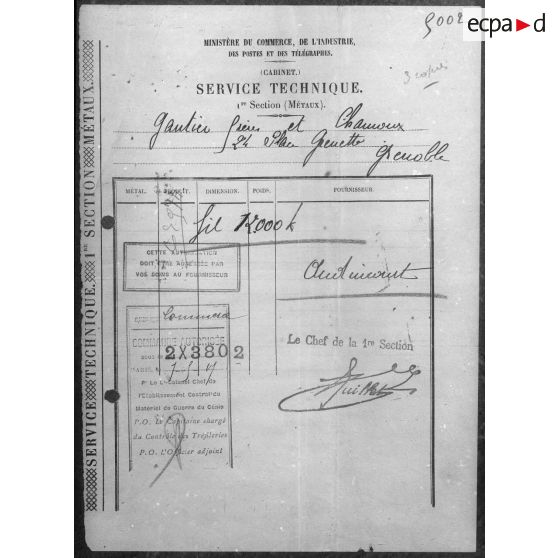 5002
ecpad
MINISTÈRE DU COMMERCE, DE L'INDUSTRIE,
DES POSTES ET DES TÉLÉGRAPHES.
(CABINET.)
3 copies
SERVICE TECHNIQUE.
1re Section (MÉTAUX).
Gautier frères et Chamoux
24 Place Grenette
Grenoble
MÉTAL.
DIMENSION.
POIDS.
FOURNISSEUR.
fil 12000 k
CETTE AUTORISATION
DOIT ÊTRE ADRESSÉE PAR
VOS SOINS AU FOURNISSEUR
Audincourt
Commerce
COMMANDE AUTORISÉE
sous le
2X3802
PARIS, le
Le Chef de la 1re Section
Pr Le Lt-Colonel Chef de
l'Etablissement Central du
Matériel de Guerre du Génie
P.O. Le Capitaine chargé
du Contrôle des Tréfileries
P.O. L'Officier adjoint
SERVICE TECHNIQUE. 1RE SECTION MÉTAUX.